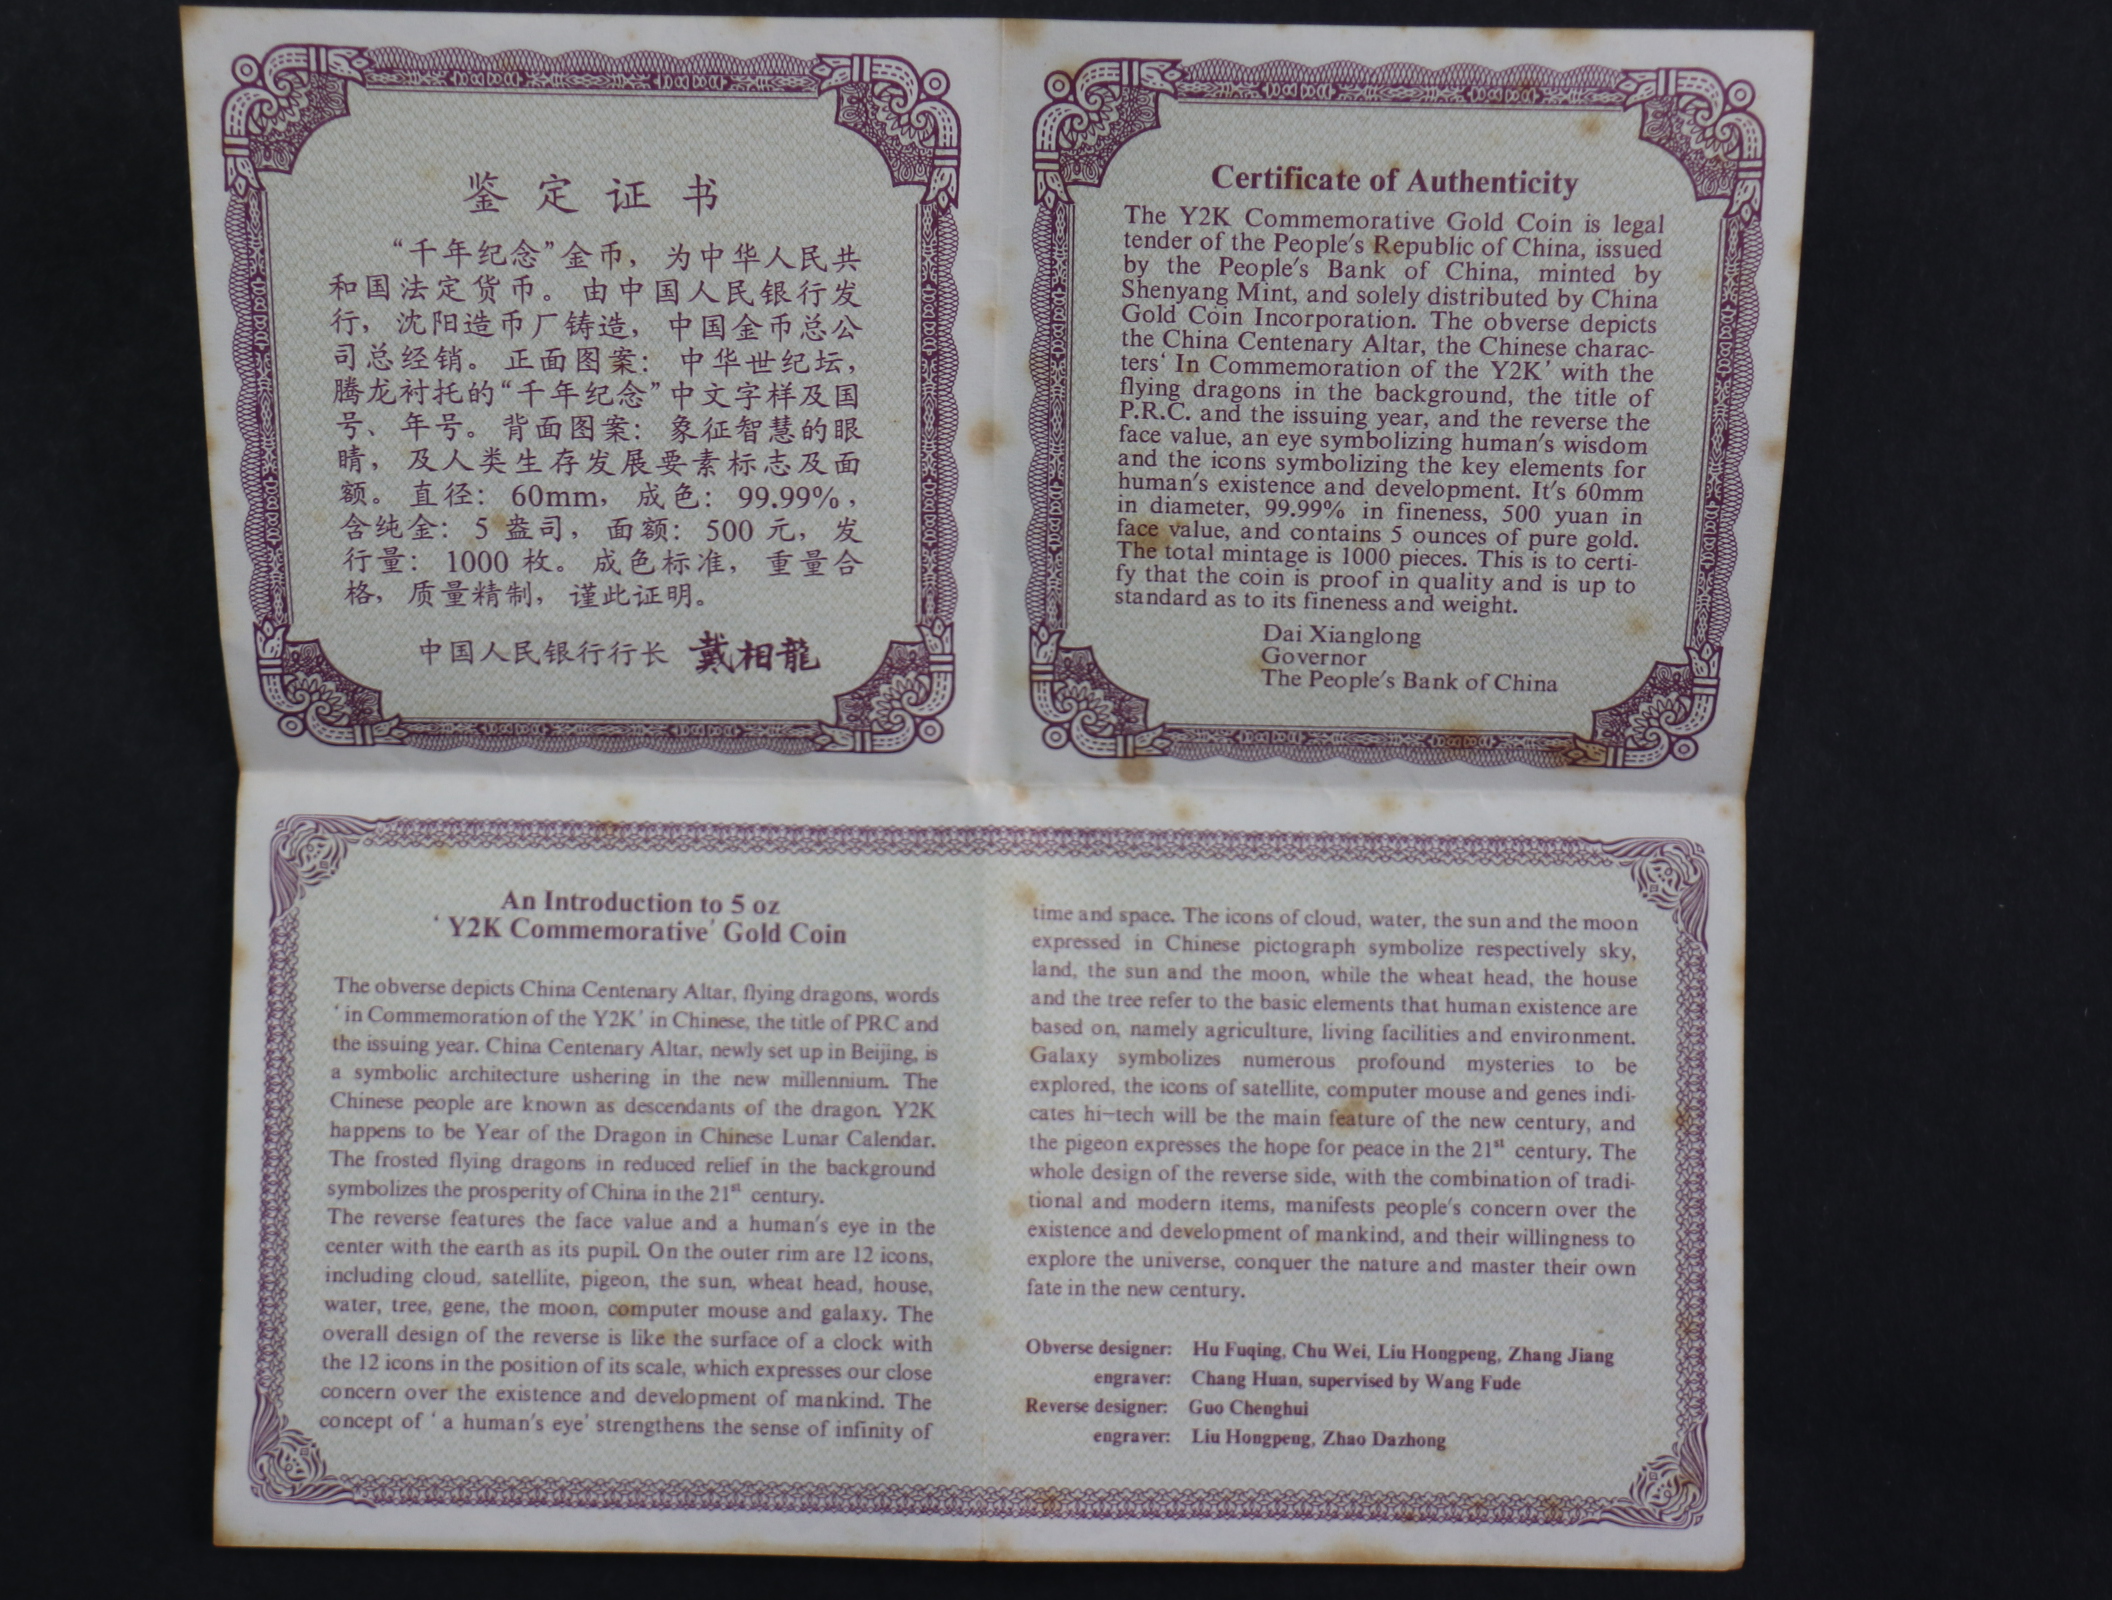 鉴定证书
“千年纪念”金币，为中华人民共
和国法定货币。由中国人民银行发
行，沈阳造币厂铸造，中国金币总公
司总经销。正面图案：中华世纪坛，
腾龙衬托的“千年纪念”中文字样及国
号、年号。背面图案：象征智慧的眼
睛，及人类生存发展要素标志及面
额。直径：60mm，成色：99.99%，
含纯金：5 盎司，面额：500 元，发
行量：1000 枚。成色标准，重量合
格，质量精制，谨此证明。
中国人民银行行长 戴相龍
Certificate of Authenticity
The Y2K Commemorative Gold Coin is legal
tender of the People's Republic of China, issued
by the People's Bank of China, minted by
Shenyang Mint, and solely distributed by China
Gold Coin Incorporation. The obverse depicts
the China Centenary Altar, the Chinese charac-
ters‘ In Commemoration of the Y2K’ with the
flying dragons in the background, the title of
P.R.C. and the issuing year, and the reverse the
face value, an eye symbolizing human's wisdom
and the icons symbolizing the key elements for
human's existence and development. It's 60mm
in diameter, 99.99% in fineness, 500 yuan in
face value, and contains 5 ounces of pure gold.
The total mintage is 1000 pieces. This is to certi-
fy that the coin is proof in quality and is up to
standard as to its fineness and weight.
Dai Xianglong
Governor
The People's Bank of China
An Introduction to 5 oz
‘Y2K Commemorative’ Gold Coin
The obverse depicts China Centenary Altar, flying dragons, words
‘in Commemoration of the Y2K’ in Chinese, the title of PRC and
the issuing year. China Centenary Altar, newly set up in Beijing, is
a symbolic architecture ushering in the new millennium. The
Chinese people are known as descendants of the dragon. Y2K
happens to be Year of the Dragon in Chinese Lunar Calendar.
The frosted flying dragons in reduced relief in the background
symbolizes the prosperity of China in the 21st century.
The reverse features the face value and a human's eye in the
center with the earth as its pupil. On the outer rim are 12 icons,
including cloud, satellite, pigeon, the sun, wheat head, house,
water, tree, gene, the moon, computer mouse and galaxy. The
overall design of the reverse is like the surface of a clock with
the 12 icons in the position of its scale, which expresses our close
concern over the existence and development of mankind. The
concept of ‘ a human's eye’ strengthens the sense of infinity of
time and space. The icons of cloud, water, the sun and the moon
expressed in Chinese pictograph symbolize respectively sky,
land, the sun and the moon, while the wheat head, the house
and the tree refer to the basic elements that human existence are
based on, namely agriculture, living facilities and environment.
Galaxy symbolizes numerous profound mysteries to be
explored, the icons of satellite, computer mouse and genes indi-
cates hi-tech will be the main feature of the new century, and
the pigeon expresses the hope for peace in the 21st century. The
whole design of the reverse side, with the combination of tradi-
tional and modern items, manifests people's concern over the
existence and development of mankind, and their willingness to
explore the universe, conquer the nature and master their own
fate in the new century.
Obverse designer: Hu Fuqing, Chu Wei, Liu Hongpeng, Zhang Jiang
engraver: Chang Huan, supervised by Wang Fude
Reverse designer: Guo Chenghui
engraver: Liu Hongpeng, Zhao Dazhong